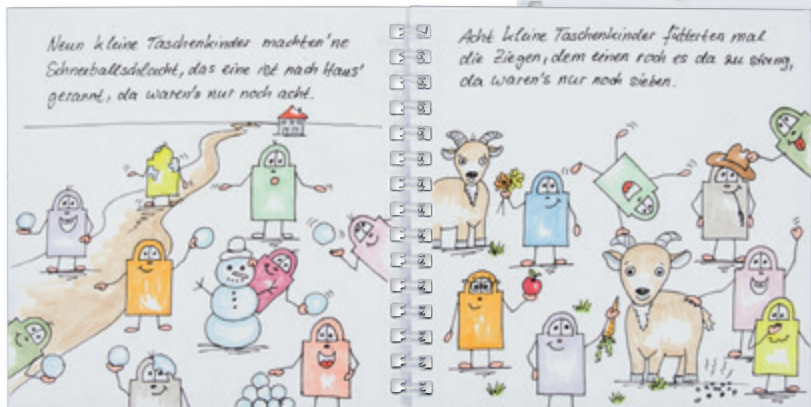 Neun kleine Taschenkinder machten'ne
Schneeballschlacht, das eine ist nach Haus'
gerannt, da waren's nur noch acht.
Acht kleine Taschenkinder fütterten mal
die Ziegen, dem einen roch es da zu streng,
da waren's nur noch sieben.